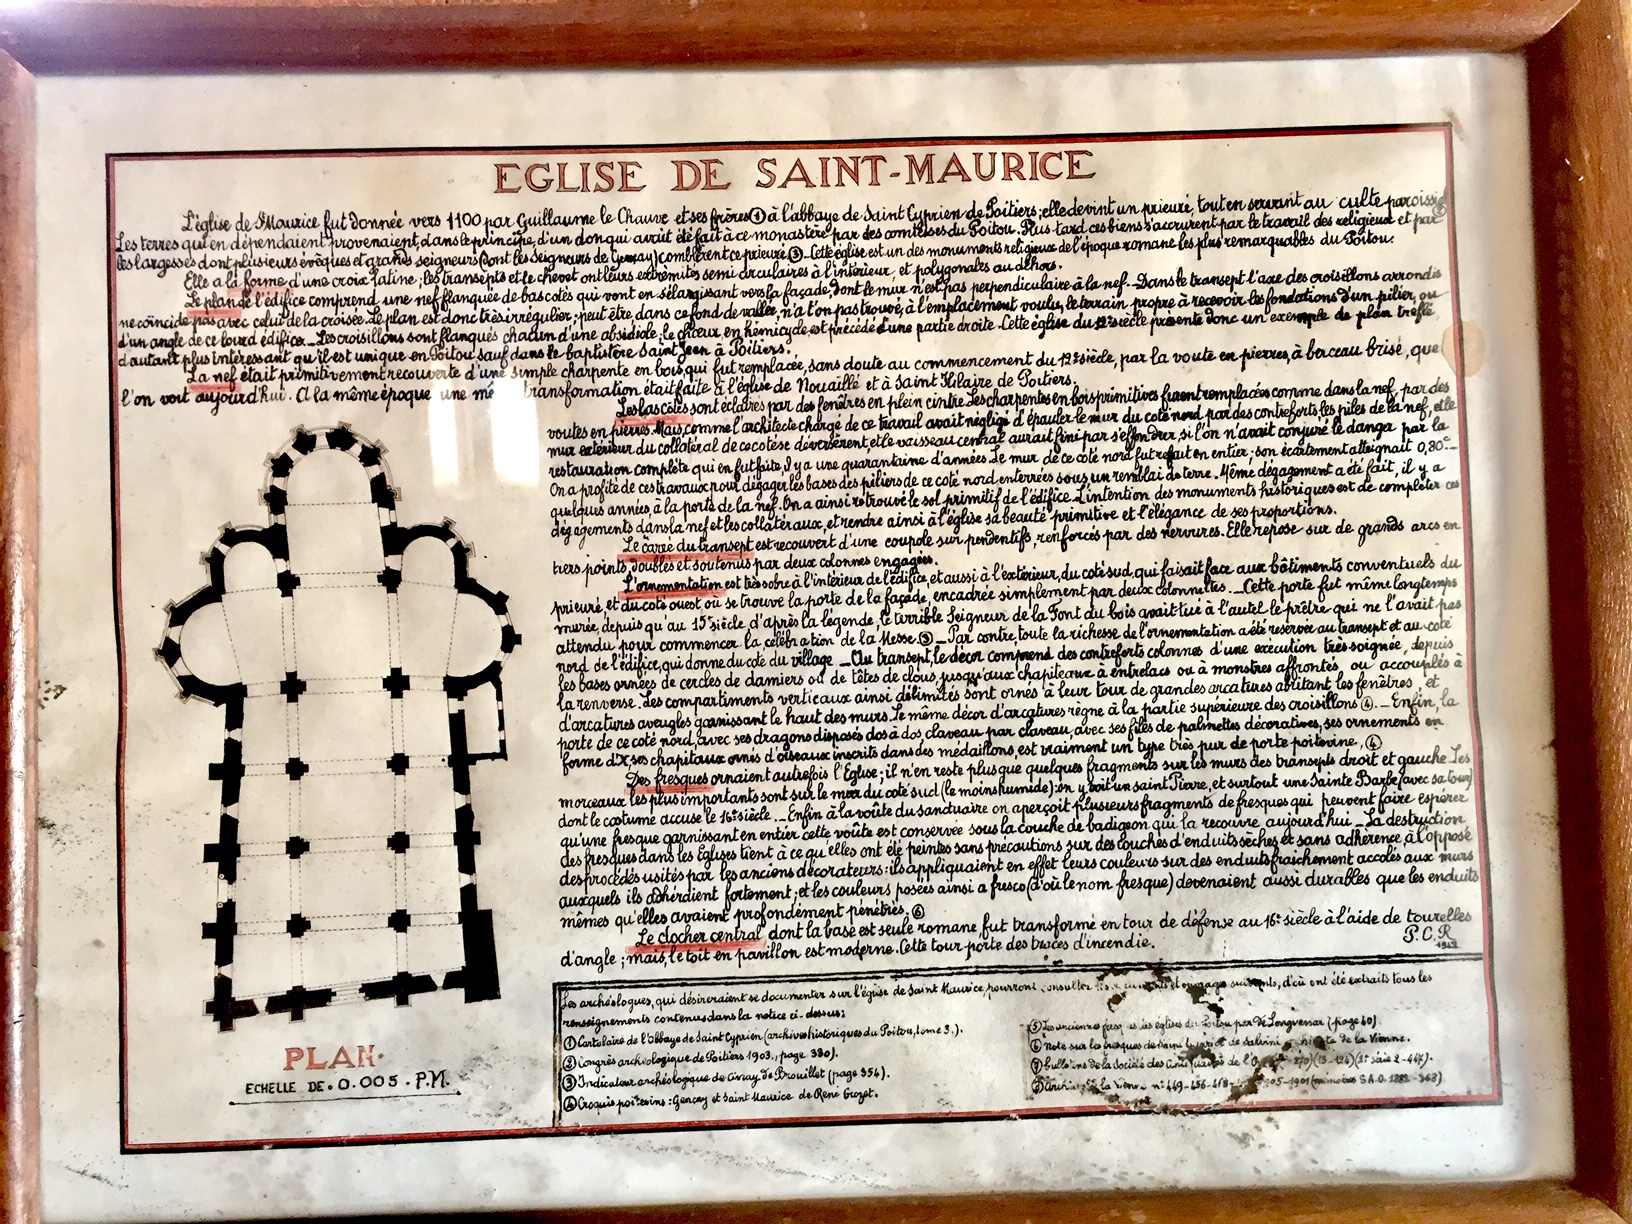 EGLISE DE SAINT-MAURICE
L'église de St Maurice fut donnée vers 1100 par Guillaume le Chauve et ses frères ① à l'abbaye de Saint Cyprien de Poitiers; elle devint un prieuré, tout en servant au culte paroissial
Les terres qui en dépendaient provenaient, dans le principe, d'un don qui avait été fait à ce monastère par des comtesses du Poitou. Plus tard ces biens s'accrurent par le travail des religieux et par
les largesses dont plusieurs évêques et grands seigneurs (dont les Seigneurs de Gençay) comblèrent ce prieuré ③ - Cette église est un des monuments religieux de l'époque romane les plus remarquables du Poitou.
Elle a la forme d'une croix latine; les transepts et le chevet ont leurs extrémités semi circulaires à l'intérieur, et polygonales au dehors.
Le plan de l'édifice comprend une nef flanquée de bas cotés qui vont en s'élargissant vers la façade, dont le mur n'est pas perpendiculaire à la nef. Dans le transept l'axe des croisillons arrondis
ne coïncide pas avec celui de la croisée. Le plan est donc très irrégulier; peut être, dans ce fond de vallée, n'a t'on pas trouvé, à l'emplacement voulu, le terrain propre à recevoir les fondations d'un pilier, ou
d'un angle de ce lourd édifice. _ Les croisillons sont flanqués chacun d'une absidiole; le chœur en hémicycle est précédé d'une partie droite. Cette église du 12e siècle présente donc un exemple de plan tréflé
d'autant plus intéressant qu'il est unique en Poitou sauf dans le baptistère Saint Jean à Poitiers.
La nef était primitivement recouverte d'une simple charpente en bois, qui fut remplacée, sans doute au commencement du 12e siècle, par la voute en pierres, à berceau brisé, que
l'on voit aujourd'hui. A la même époque une mê transformation était faite à l'église de Nouaillé et à Saint Hilaire de Poitiers.
Les bas cotés sont éclairés par des fenêtres en plein cintre. Les charpentes en bois primitives furent remplacées comme dans la nef, par des
voutes en pierres. Mais, comme l'architecte chargé de ce travail avait négligé d'épauler le mur du coté nord par des contreforts, les piles de la nef, et le
mur extérieur du collatéral de ce coté se déversèrent, et le vaisseau central aurait fini par s'effondrer, si l'on n'avait conjuré le danger par la
restauration complète qui en fut faite, il y a une quarantaine d'années. Le mur de ce coté nord fut refait en entier; son écartement atteignait 0,80c -
On a profité de ces travaux pour dégager les bases des piliers de ce coté nord enterrées sous un remblai de terre. Même dégagement a été fait, il y a
quelques années, à la porte de la nef. On a ainsi retrouvé le sol primitif de l'édifice. L'intention des monuments historiques est de compléter ces
dégagements dans la nef et les collatéraux, et rendre ainsi à l'église sa beauté primitive et l'élégance de ses proportions.
Le carré du transept est recouvert d'une coupole sur pendentifs, renforcés par des nervures. Elle repose sur de grands arcs en
tiers points, doublés et soutenus par deux colonnes engagées.
L'ornementation est très sobre à l'intérieur de l'édifice, et aussi à l'extérieur, du coté sud, qui faisait face aux bâtiments conventuels du
prieuré, et du coté ouest où se trouve la porte de la façade, encadrée simplement par deux colonnettes. _ Cette porte fut même longtemps
murée, depuis qu'au 15e siècle, d'après la légende, le terrible Seigneur de la Font du bois avait tué à l'autel le prêtre qui ne l'avait pas
attendu pour commencer la célébration de la Messe. ③ _ Par contre, toute la richesse de l'ornementation a été réservée au transept et au coté
nord de l'édifice, qui donne du coté du village _ Au transept, le décor comprend des contreforts colonnes d'une exécution très soignée, depuis
les bases ornées de cercles de damiers ou de têtes de clous, jusqu'aux chapiteaux à entrelacs ou à monstres affrontés, ou accouplés à
la renverse. Les compartiments verticaux ainsi délimités sont ornés à leur tour de grandes arcatures abritant les fenêtres, et
d'arcatures aveugles garnissant le haut des murs. Le même décor d'arcatures règne à la partie supérieure des croisillons ④. _ Enfin, la
porte de ce coté nord, avec ses dragons disposés dos à dos, claveau par claveau, avec ses files de palmettes décoratives, ses ornements en
forme d'X, ses chapiteaux ornés d'oiseaux inscrits dans des médaillons, est vraiment un type très pur de porte poitevine, ④
Des fresques ornaient autrefois l'Eglise; il n'en reste plus que quelques fragments sur les murs des transepts droit et gauche. Les
morceaux les plus importants sont sur le mur du coté sud (le moins humide): on y voit un saint Pierre, et surtout une Sainte Barbe (avec sa tour)
dont le costume accuse le 16e siècle. _ Enfin à la voûte du sanctuaire on aperçoit plusieurs fragments de fresques qui peuvent faire espérer
qu'une fresque garnissant en entier cette voûte est conservée sous la couche de badigeon qui la recouvre aujourd'hui _ La destruction
des fresques dans les Eglises tient à ce qu'elles ont été peintes sans précautions sur des couches d'enduits sèches et sans adhérence, à l'opposé
des procédés usités par les anciens décorateurs: ils appliquaient en effet leurs couleurs sur des enduits fraîchement accolés aux murs
auxquels ils adhéraient fortement; et les couleurs posées ainsi a fresco (d'où le nom fresque) devenaient aussi durables que les enduits
mêmes qu'elles avaient profondément pénétrés. ⑥
Le clocher central dont la base est seule romane, fut transformé en tour de défense au 16e siècle à l'aide de tourelles
d'angle; mais, le toit en pavillon est moderne. Cette tour porte des traces d'incendie.
P.C.R
PLAN.
ECHELLE DE. 0.005. P.M.
Les archéologues, qui désireraient se documenter sur l'église de Saint Maurice, pourront consulter les et ouvrages suivants, d'où ont été extraits tous les
renseignements contenus dans la notice ci-dessus:
① Cartulaire de l'Abbaye de Saint Cyprien (archives historiques du Poitou, tome 3.).
② Congrès archéologique de Poitiers 1903., page 330).
③ Indicateur archéologique de Civray de Brouillet (page 354).
④ Croquis poitevins: Gençay et Saint Maurice de René Crozet.
⑤ Les anciennes fresques des églises du Poitou par de Longuemar (page 40).
⑥ Note sur les fresques de Saint de la Vienne.
⑦ bulletins de la Société des Antiquaires de l'O (1e série 2-447).
⑧ Archives de la Vienne n° 449-456-468